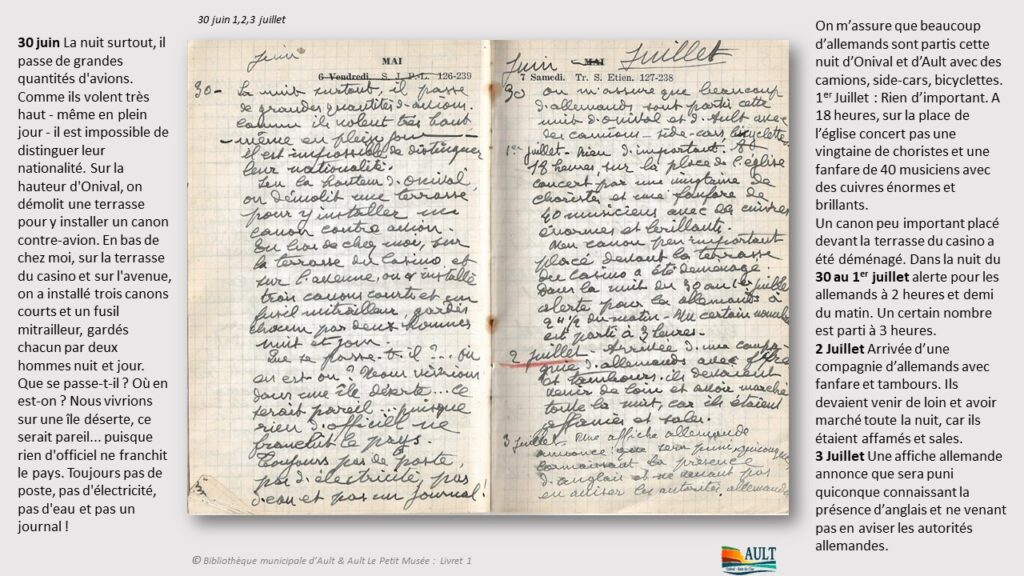 30 juin 1,2,3 juillet
30 juin La nuit surtout, il
passe de grandes
quantités d'avions.
Comme ils volent très
haut - même en plein
jour - il est impossible de
distinguer leur
nationalité. Sur la
hauteur d'Onival, on
démolit une terrasse
pour y installer un canon
contre-avion. En bas de
chez moi, sur la terrasse
du casino et sur l'avenue,
on a installé trois canons
courts et un fusil
mitrailleur, gardés
chacun par deux
hommes nuit et jour.
Que se passe-t-il ? Où en
est-on ? Nous vivrions
sur une île déserte, ce
serait pareil... puisque
rien d'officiel ne franchit
le pays. Toujours pas de
poste, pas d'électricité,
pas d'eau et pas un
journal !
Juin
MAI
6 Vendredi. S. J. P.-L. 126-239
30- La nuit surtout, il passe
de grandes quantités d'avions.
Comme ils volent très haut
- même en plein jour -
il est impossible de distinguer
leur nationalité.
Sur la hauteur d'Onival,
on démolit une terrasse
pour y installer un
canon contre avion.
En bas de chez moi, sur
la terrasse du casino, et
sur l'avenue, on a installé
trois canons courts et un
fusil mitrailleur, gardés
chacun par deux hommes
nuit et jour.
Que se passe-t-il ?... où
en est-on ? Nous vivrions
dans une île déserte... ce
serait pareil... puisque
rien d'officiel ne
franchit le pays.
Toujours pas de poste,
pas d'électricité, pas
d'eau et pas un journal !
Juin MAI Juillet
7 Samedi. Tr. S. Etien. 127-238
30 On m'assure que beaucoup
d'allemands sont partis cette
nuit d'Onival et d'Ault avec
des camions - side-cars, bicyclettes
1er juillet - Rien d'important. A
18 heures, sur la place de l'église
concert par une vingtaine de
choristes et une fanfare de
40 musiciens avec des cuivres
énormes et brillants.
Un canon peu important
placé devant la terrasse
du casino a été déménagé.
Dans la nuit du 30 au 1er juillet
alerte pour les allemands à
2 h 1/2 du matin - Un certain nombre
est parti à 3 heures -
2 juillet - Arrivée d'une compa-
gnie d'allemands avec fifre
et tambours. ils devaient
venir de loin et avoir marché
toute la nuit, car ils étaient
affamés et sales.
3 juillet - Une affiche allemande
annonce que sera puni quiconque
connaissant la présence
d'anglais et ne venant pas
en aviser les autorités allemandes
On m’assure que beaucoup
d’allemands sont partis cette
nuit d’Onival et d’Ault avec des
camions, side-cars, bicyclettes.
1er Juillet : Rien d’important. A
18 heures, sur la place de
l’église concert pas une
vingtaine de choristes et une
fanfare de 40 musiciens avec
des cuivres énormes et
brillants.
Un canon peu important placé
devant la terrasse du casino a
été déménagé. Dans la nuit du
30 au 1er juillet alerte pour les
allemands à 2 heures et demi
du matin. Un certain nombre
est parti à 3 heures.
2 Juillet Arrivée d’une
compagnie d’allemands avec
fanfare et tambours. Ils
devaient venir de loin et avoir
marché toute la nuit, car ils
étaient affamés et sales.
3 Juillet Une affiche allemande
annonce que sera puni
quiconque connaissant la
présence d’anglais et ne venant
pas en aviser les autorités
allemandes.
© Bibliothèque municipale d’Ault & Ault Le Petit Musée : Livret 1
AULT